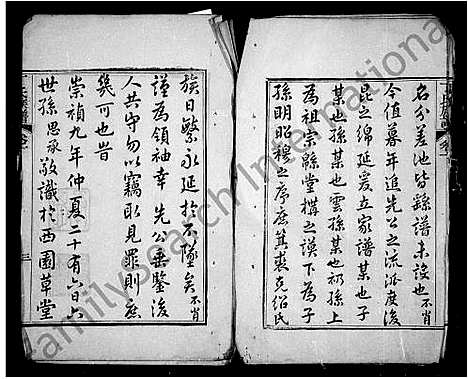 名分差池皆繇譜未詳也不肖
今值暮年追先公之流派庶後
昆之綿延爰立家譜某也子
某也孫某也雲孫某也礽孫上
為祖宗繇堂構之謨下為子
孫明昭穆之序庶箕裘克紹氏
族日繁永延於不墜矣不肖
謹為領袖幸先公垂鑒後
人共守勿以竊取見罪則庶
幾可也旹
崇禎九年仲夏二十有六日六
世孫思承敬識於西園草堂
FamilySearch International